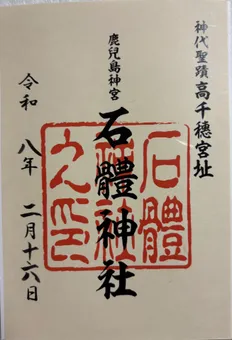 神代聖蹟高千穂宮址
鹿兒島神宮
石體神社
石體
神社
令和八年二月十六日